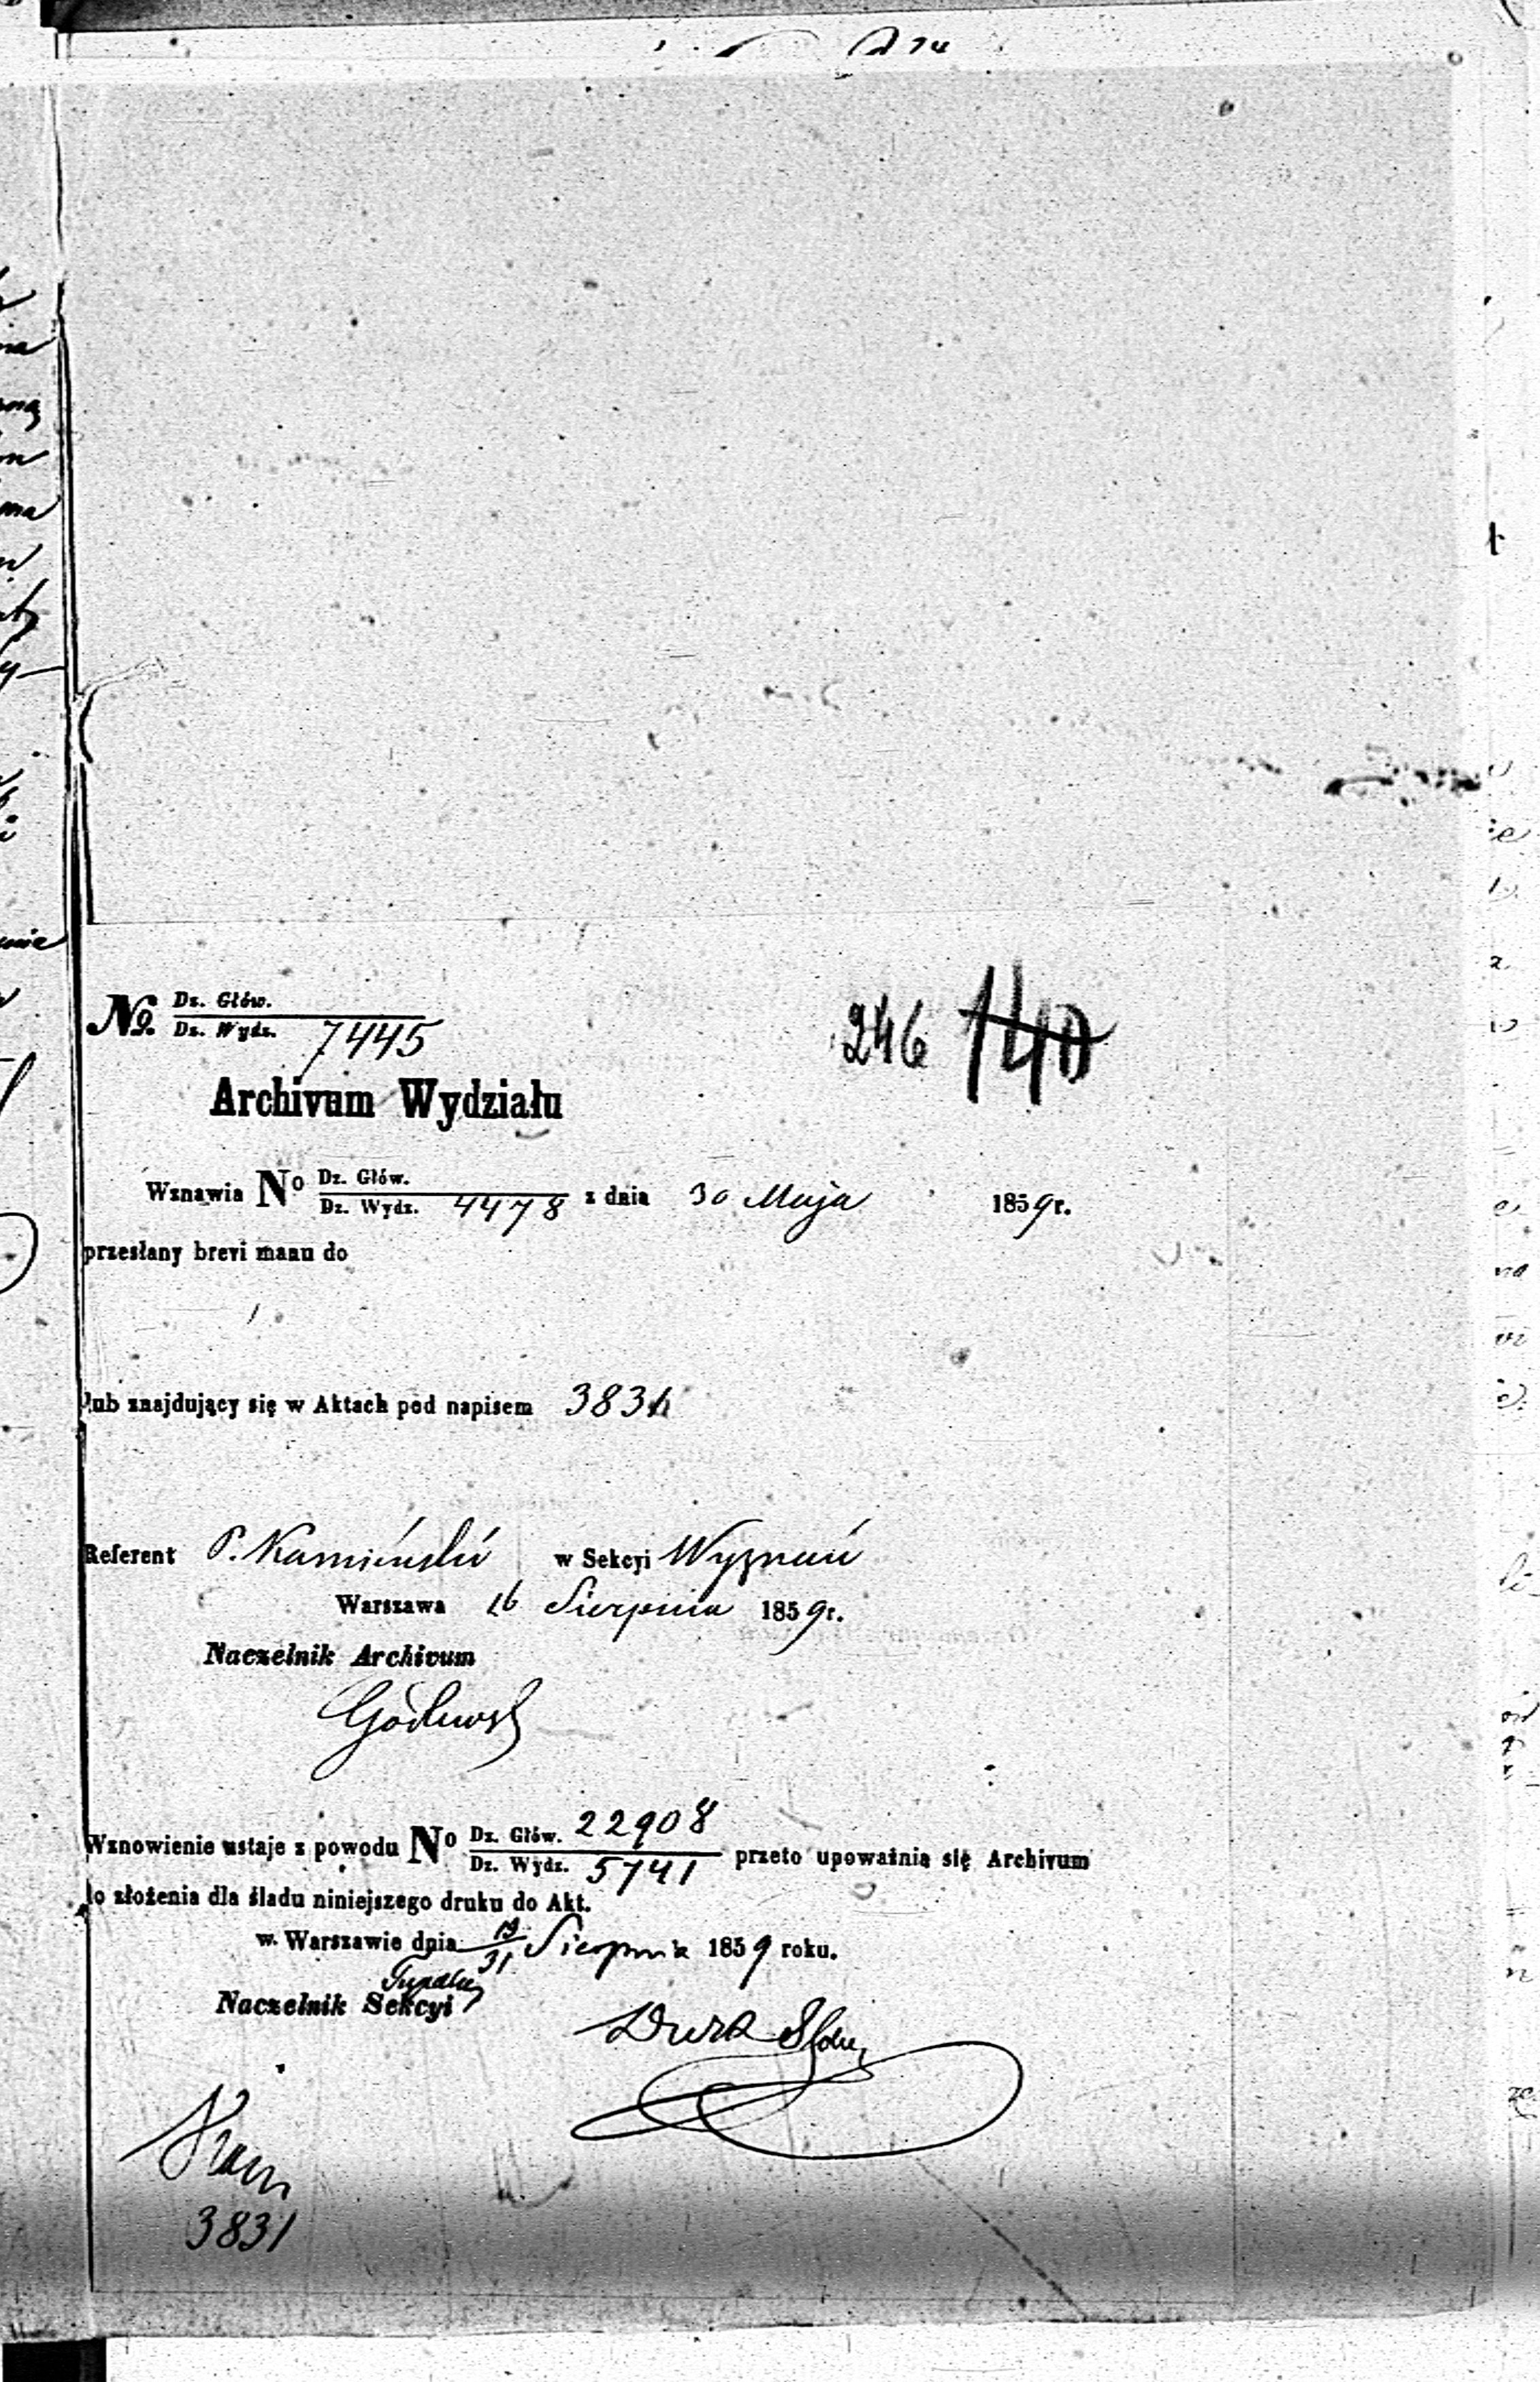 246 140
No Dz. Głów.
Dz. Wydz. 7445
Archivum Wydziału
Wznawia No Dz. Głów.
Dz. Wydz. 4478 z dnia 30 Maja 1859 r.
przesłany brevi manu do
lub znajdujący się w Aktach pod napisem 3831
Referent P. Kamiński w Sekcyi Wyznań
Warszawa 16 Sierpnia 1859 r.
Naczelnik Archivum
Godlewski
Wznowienie ustaje z powodu No Dz. Głów. 22908
Dz. Wydz. 5741 przeto upoważnia się Archivum
do złożenia dla śladu niniejszego druku do Akt.
w Warszawie dnia 19/31 Sierpnia 1859 roku.
Naczelnik Sekcyi
3831